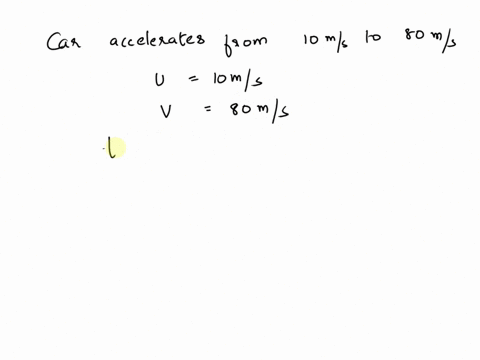 Car accelerates from 10 m/s to 80 m/s
U = 10 m/s
V = 80 m/s